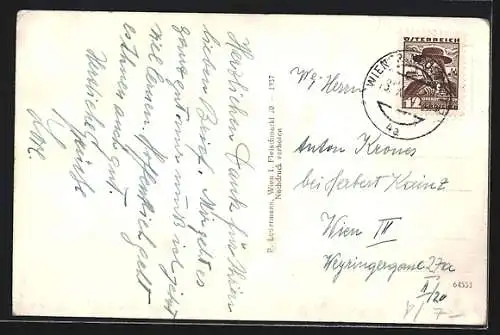 Herzlichen Dank für Ihren
lieben Brief. Mir geht es
ganz gut nur muß ich jetzt
viel lernen. Hoffentlich geht
es Ihnen auch gut.
Herzlichst
P. Ledermann, Wien I, Fleischmarkt 19 - 1937
Nachdruck verboten
ÖSTERREICH
12
WIEN
4a
Wg. Herrn
Anton Krones
bei Herbert Kainz
Wien IV
Weyringergasse 27a
64553
1/20
7-